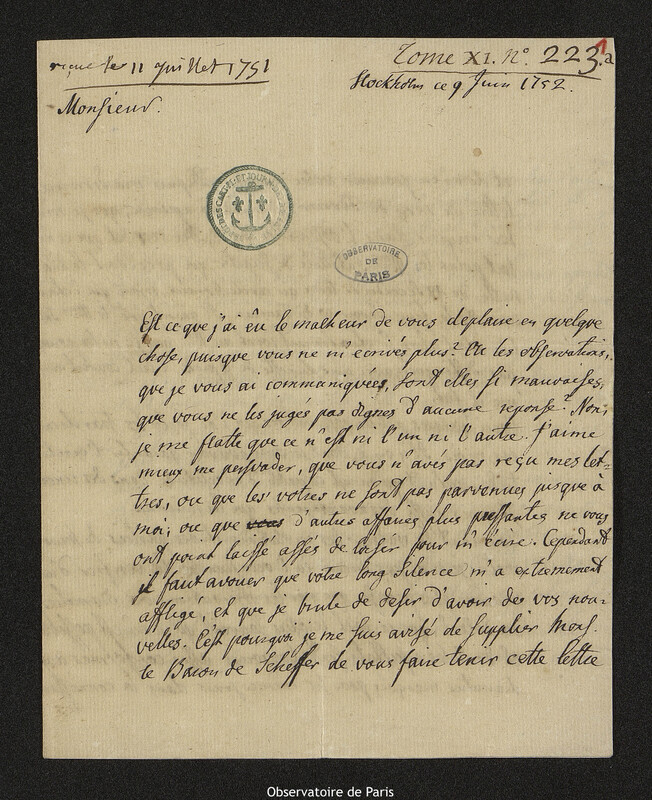 Tome XI. N.º 223.1a
reçue le 11 Juillet 1751
Stockholm ce 9 Juin 1752.
Monsieur.
OBSERVATOIRE
DE
PARIS
Est ce que j'ai êu le malheur de vous deplaire en quelque
chose, puisque vous ne m'ecrivés plus? Ou les observations,
que je vous ai communiquées, sont elles si mauvaises,
que vous ne les jugés pas dignes d'aucune reponse? Non;
je me flatte que ce n'est ni l'un ni l'autre. J'aime
mieux me persvader, que vous n'avés pas reçu mes let-
tres, ou que les votres ne sont pas parvenues jusque à
moi; ou que vous d'autres affaires plus pressantes ne vous
ont point laissé assés de loisir pour m'ecrire. Cependant
il faut avouer que votre long silence m'a extremement
affligé, et que je brule de desir d'avoir des vos nou-
velles. C'est pourquoi je me suis avisé de supplier Mons.
le Baron de Scheffer de vous faire tenir cette lettre
Observatoire de Paris